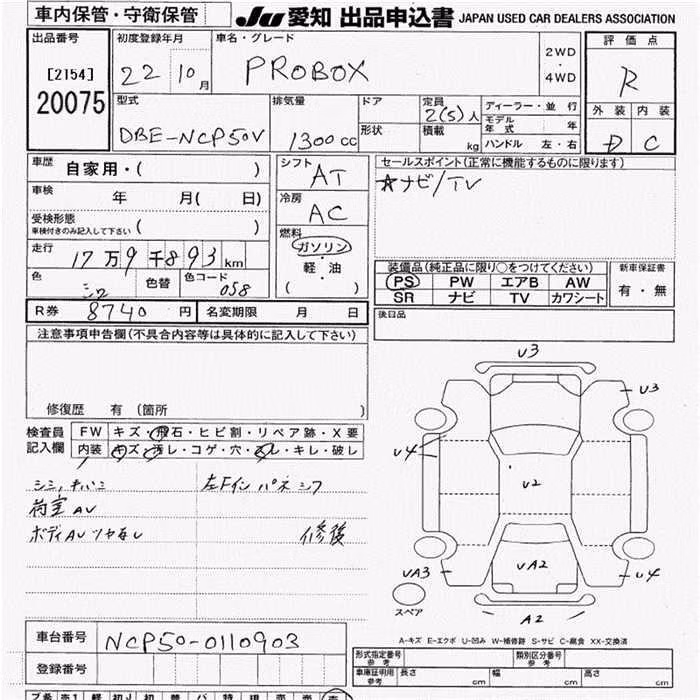 車内保管・守衛保管
JU 愛知 出品申込書 JAPAN USED CAR DEALERS ASSOCIATION
出品番号 初度登録年月 車名・グレード 2WD・4WD 評価点
[2154] 22 10月 PROBOX R
20075
型式 排気量 ドア 定員 2(5)人 ディーラー・並行 外装 内装
DBE-NCP50V 1300cc 形状 積載 kg モデル年式 年 D C
ハンドル 左・右
車歴 自家用・( ) シフト AT セールスポイント(正常に機能するものに限ります)
☆ナビ/TV
車検 年 月( 日) 冷房 AC
受検形態
車検付きのみ記入して下さい ( )
燃料 ガソリン・軽・油 ( )
走行 17万9千893km
装備品(純正品に限り○をつけてください) 新車保証書
PS PW エアB AW 有・無
SR ナビ TV カワシート
色 シロ 色替 色コード 058
R券 8740円 名変期限 月 日 後日品
注意事項申告欄(不具合内容等は具体的に記入して下さい)
修復歴 有 (箇所 )
検査員記入欄 FW キズ・飛石・ヒビ割・リペア跡・X要
内装 キズ・汚レ・コゲ・穴・スレ・キレ・破レ
左Fイン パネ
荷室AV
ボディAUツヤなし 修復
U3
U3
U4
U2
UA2
UA3
U4
A2
スペア
A-キズ E-エクボ U-凹み W-補修跡 S-サビ C-腐食 XX-交換済
車台番号 NCP50-0110903
登録番号
形式指定番号 参考 類別区分番号 参考
車庫証明用 参考 長さ cm 幅 cm 高さ cm